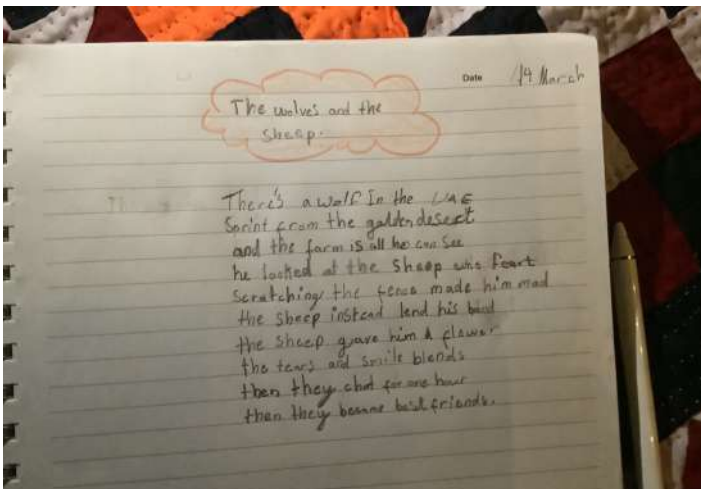 Date 14 March
The wolves and the
sheep.
There's a wolf In the UAE
Sprint from the golden desert
and the farm is all he can see
he looked at the sheep who
Scratching the fence made him mad
the sheep instead lend his
the sheep gave him a flower
the tears and smile blends
then they chat for one hour
then they became best friends.